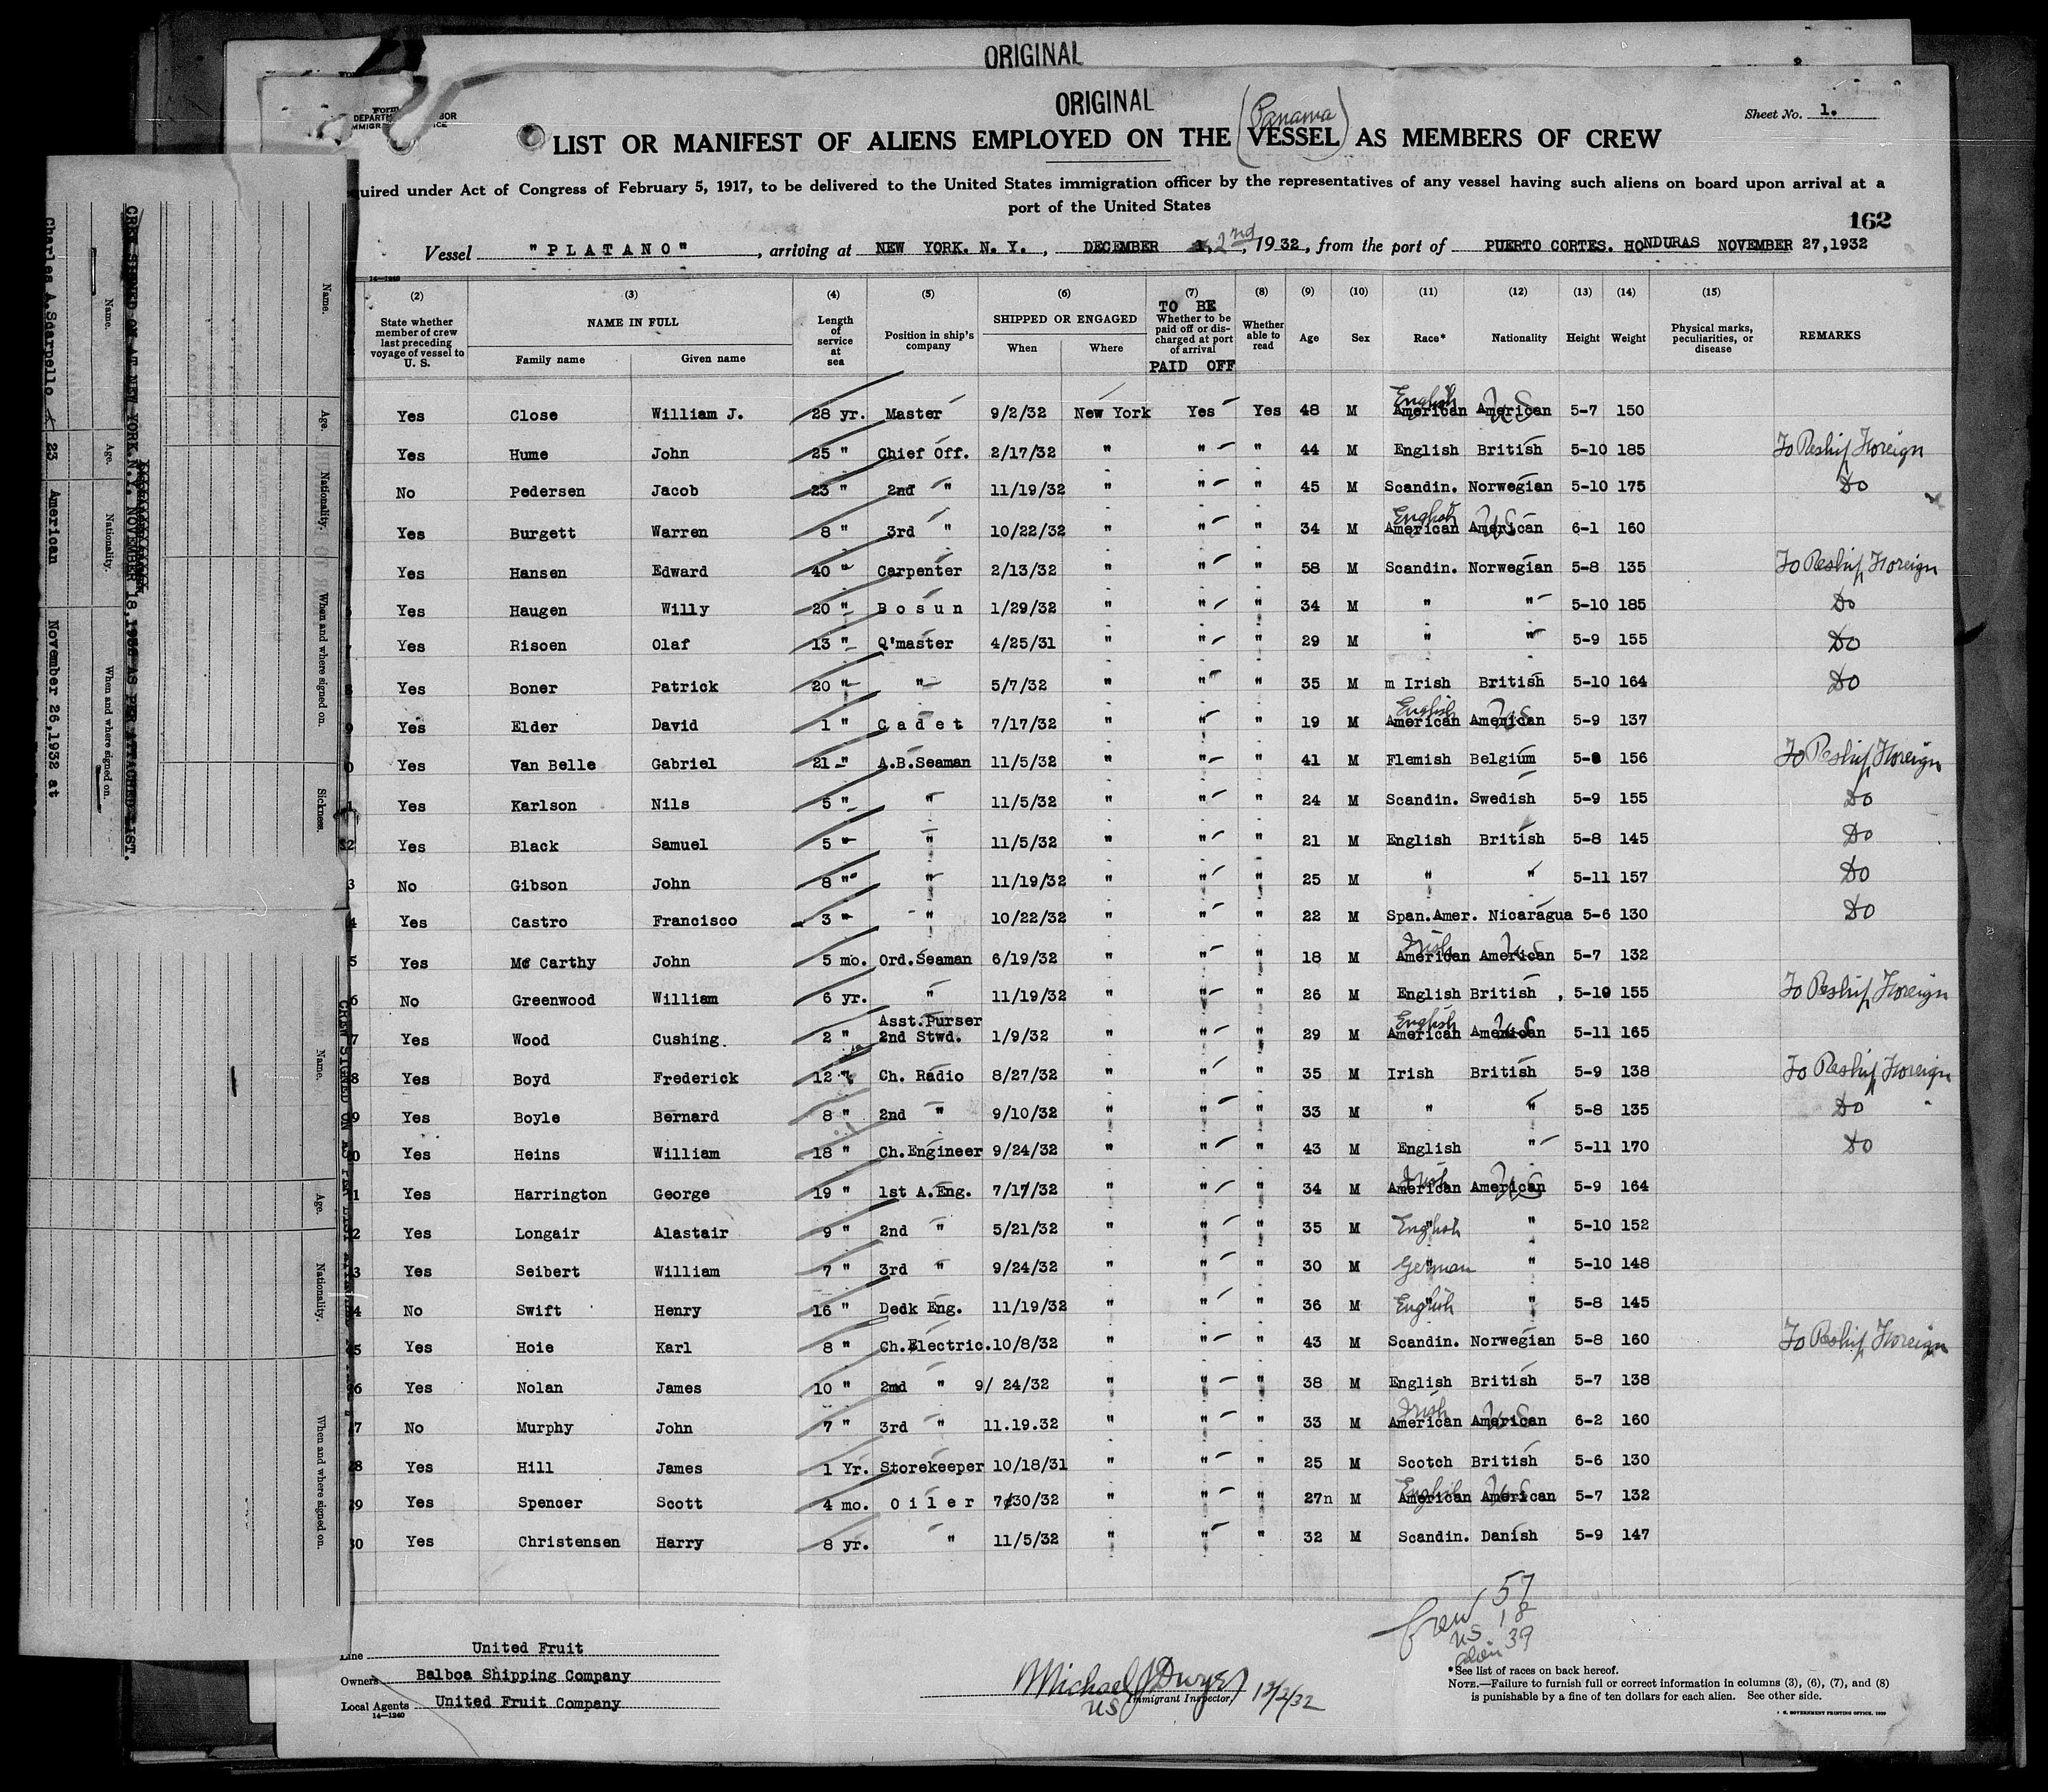 ORIGINAL
ORIGINAL
(Panama)
Sheet No. 1.
LIST OR MANIFEST OF ALIENS EMPLOYED ON THE VESSEL AS MEMBERS OF CREW
uired under Act of Congress of February 5, 1917, to be delivered to the United States immigration officer by the representatives of any vessel having such aliens on board upon arrival at a
port of the United States
162
Vessel "PLATANO", arriving at NEW YORK. N.Y., DECEMBER 2nd, 1932, from the port of PUERTO CORTES. HONDURAS NOVEMBER 27,1932
14—1240
(2) (3) (4) (5) (6) (7) (8) (9) (10) (11) (12) (13) (14) (15)
State whether member of crew last preceding voyage of vessel to U. S.
NAME IN FULL
Family name Given name
Length of service at sea
Position in ship's company
SHIPPED OR ENGAGED
When Where
TO BE
Whether to be paid off or discharged at port of arrival
PAID OFF
Whether able to read
Age Sex Race* Nationality Height Weight
Physical marks, peculiarities, or disease
REMARKS
Yes Close William J. 28 yr. Master 9/2/32 New York Yes Yes 48 M American English American US 5-7 150
Yes Hume John 25 " Chief Off. 2/17/32 " " " 44 M English British 5-10 185 To Reship Foreign
No Pedersen Jacob 23 " 2nd " 11/19/32 " " " 45 M Scandin. Norwegian 5-10 175 Do
Yes Burgett Warren 8 " 3rd " 10/22/32 " " " 34 M American English American US 6-1 160
Yes Hansen Edward 40 " Carpenter 2/13/32 " " " 58 M Scandin. Norwegian 5-8 135 To Reship Foreign
Yes Haugen Willy 20 " Bosun 1/29/32 " " " 34 M " " 5-10 185 Do
Yes Risoen Olaf 13 " Q'master 4/25/31 " " " 29 M " " 5-9 155 Do
8 Yes Boner Patrick 20 " " 5/7/32 " " " 35 M m Irish British 5-10 164 Do
9 Yes Elder David 1 " Cadet 7/17/32 " " " 19 M American English American US 5-9 137
0 Yes Van Belle Gabriel 21 " A.B.Seaman 11/5/32 " " " 41 M Flemish Belgium 5-8 156 To Reship Foreign
1 Yes Karlson Nils 5 " " 11/5/32 " " " 24 M Scandin. Swedish 5-9 155 Do
2 Yes Black Samuel 5 " " 11/5/32 " " " 21 M English British 5-8 145 Do
3 No Gibson John 8 " " 11/19/32 " " " 25 M " " 5-11 157 Do
4 Yes Castro Francisco 3 " " 10/22/32 " " " 22 M Span.Amer. Nicaragua 5-6 130 Do
5 Yes Mc Carthy John 5 mo. Ord.Seaman 6/19/32 " " " 18 M American Irish American US 5-7 132
6 No Greenwood William 6 yr. " 11/19/32 " " " 26 M English British , 5-10 155 To Reship Foreign
7 Yes Wood Cushing 2 " Asst.Purser 2nd Stwd. 1/9/32 " " " 29 M American English American US 5-11 165
8 Yes Boyd Frederick 12 " Ch. Radio 8/27/32 " " " 35 M Irish British 5-9 138 To Reship Foreign
9 Yes Boyle Bernard 8 " 2nd " 9/10/32 " " " 33 M " " 5-8 135 Do
0 Yes Heins William 18 " Ch.Engineer 9/24/32 " " " 43 M English " 5-11 170 Do
1 Yes Harrington George 19 " 1st A.Eng. 7/17/32 " " " 34 M American Irish American US 5-9 164
2 Yes Longair Alastair 9 " 2nd " 5/21/32 " " " 35 M " English " 5-10 152
3 Yes Seibert William 7 " 3rd " 9/24/32 " " " 30 M " German " 5-10 148
4 No Swift Henry 16 " Dedk Eng. 11/19/32 " " " 36 M " English " 5-8 145
5 Yes Hoie Karl 8 " Ch.Electric. 10/8/32 " " " 43 M Scandin. Norwegian 5-8 160 To Reship Foreign
6 Yes Nolan James 10 " 2nd " 9/ 24/32 " " " 38 M English British 5-7 138
7 No Murphy John 7 " 3rd " 11.19.32 " " " 33 M American Irish American US 6-2 160
28 Yes Hill James 1 Yr. Storekeeper 10/18/31 " " " 25 M Scotch British 5-6 130
29 Yes Spencer Scott 4 mo. Oiler 7/30/32 " " " 27n M American English American US 5-7 132
30 Yes Christensen Harry 8 yr. " 11/5/32 " " " 32 M Scandin. Danish 5-9 147
Crew 57
US 18
alien 39
Line United Fruit
Owners Balboa Shipping Company
Local Agents United Fruit Company
14—1240
Michael J Dwyer
US Immigrant Inspector 12/2/32
*See list of races on back hereof.
NOTE.—Failure to furnish full or correct information in columns (3), (6), (7), and (8)
is punishable by a fine of ten dollars for each alien. See other side.
GOVERNMENT PRINTING OFFICE
Name. Age. Nationality. When and where signed on. Sickness.
CREW SIGNED ON AT NEW YORK.N.Y. NOVEMBER 18,1932 AS PER ATTACHED LIST.
Name. Age. Nationality. When and where signed on.
Charles A.Sdarpello 23 American November 26,1932 at
CREW SIGNED ON AS PER LIST
Name. Age. Nationality. When and where signed on.